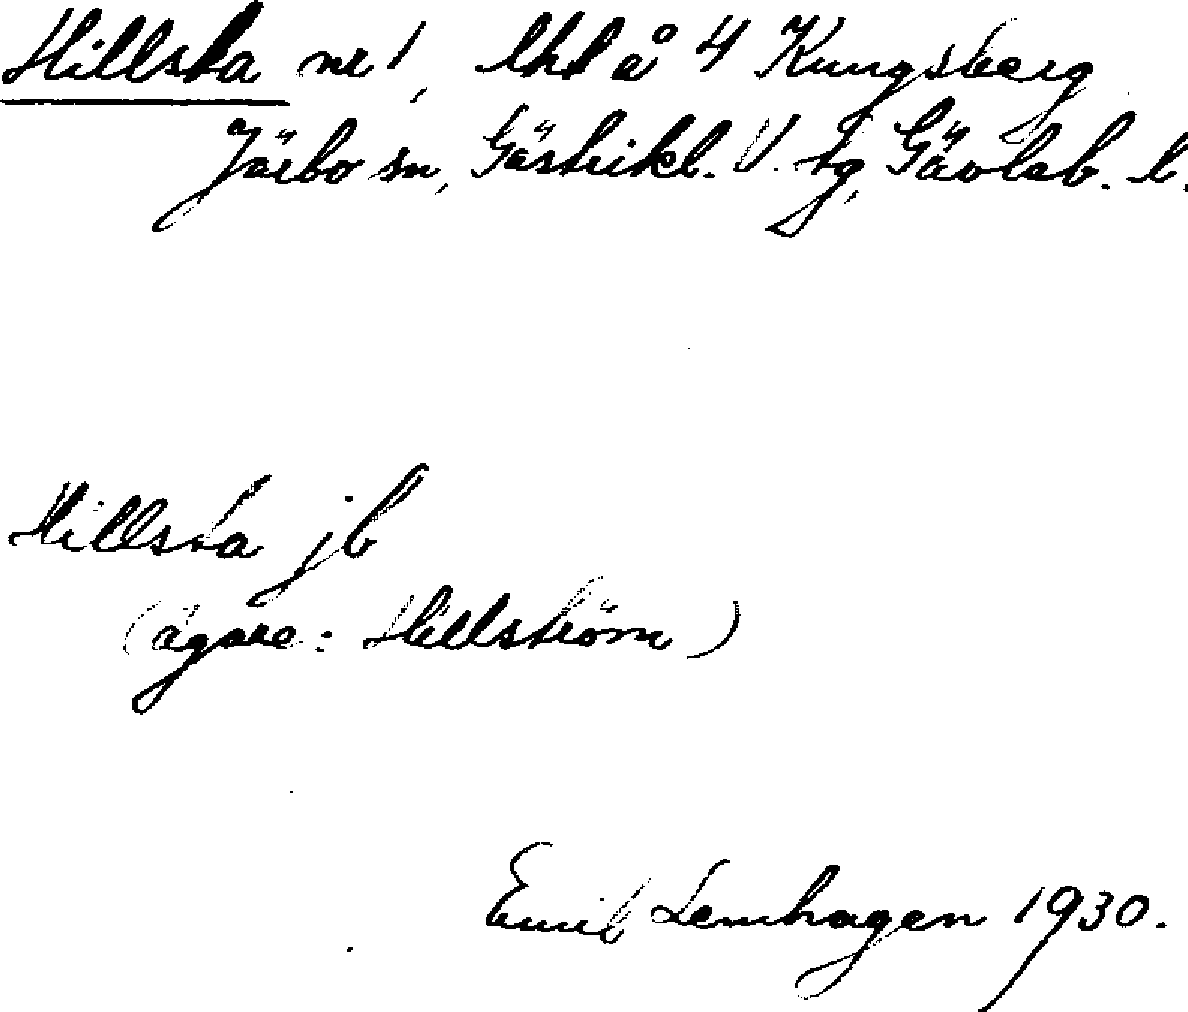 Hillsta nr 1, lht å 4 Kungsberg
Järbo sn, Gästrikl. V. tg, Gävleb. l.
Hillsta jb
(ägare: Hillström)
Emil Lenhagen 1930.